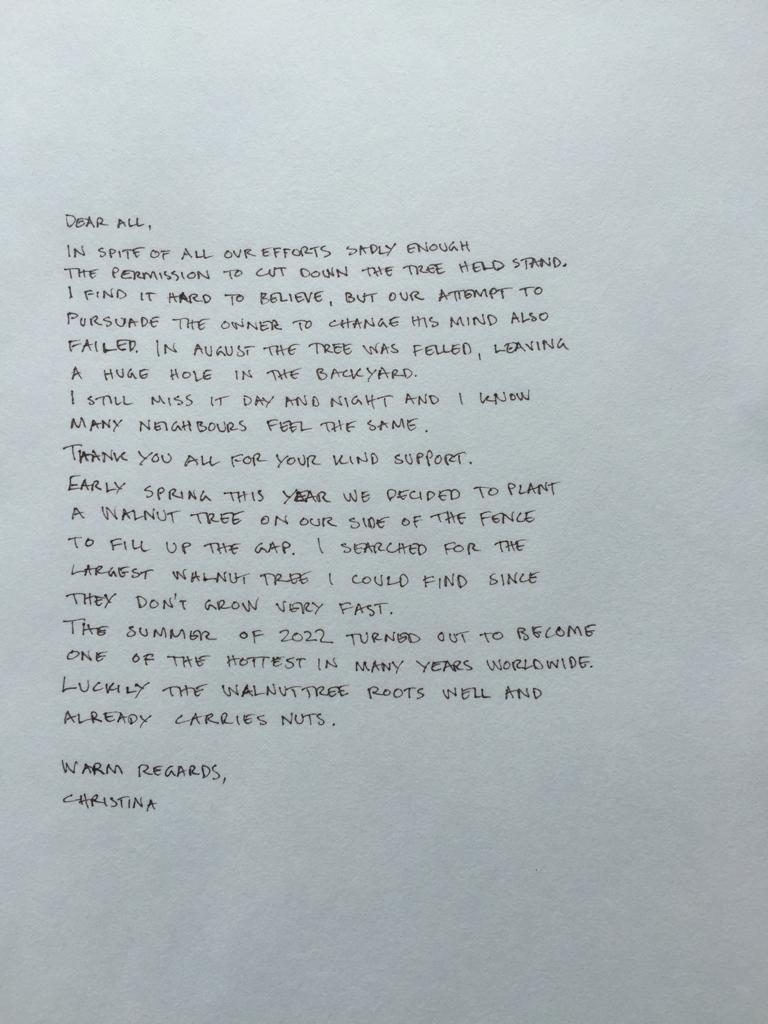 DEAR ALL,
IN SPITE OF ALL OUR EFFORTS SADLY ENOUGH
THE PERMISSION TO CUT DOWN THE TREE HELD STAND.
I FIND IT HARD TO BELIEVE, BUT OUR ATTEMPT TO
PURSUADE THE OWNER TO CHANGE HIS MIND ALSO
FAILED. IN AUGUST THE TREE WAS FELLED, LEAVING
A HUGE HOLE IN THE BACKYARD.
I STILL MISS IT DAY AND NIGHT AND I KNOW
MANY NEIGHBOURS FEEL THE SAME.
THANK YOU ALL FOR YOUR KIND SUPPORT.
EARLY SPRING THIS YEAR WE DECIDED TO PLANT
A WALNUT TREE ON OUR SIDE OF THE FENCE
TO FILL UP THE GAP. I SEARCHED FOR THE
LARGEST WALNUT TREE I COULD FIND SINCE
THEY DON'T GROW VERY FAST.
THE SUMMER OF 2022 TURNED OUT TO BECOME
ONE OF THE HOTTEST IN MANY YEARS WORLDWIDE.
LUCKILY THE WALNUTTREE ROOTS WELL AND
ALREADY CARRIES NUTS.
WARM REGARDS,
CHRISTINA